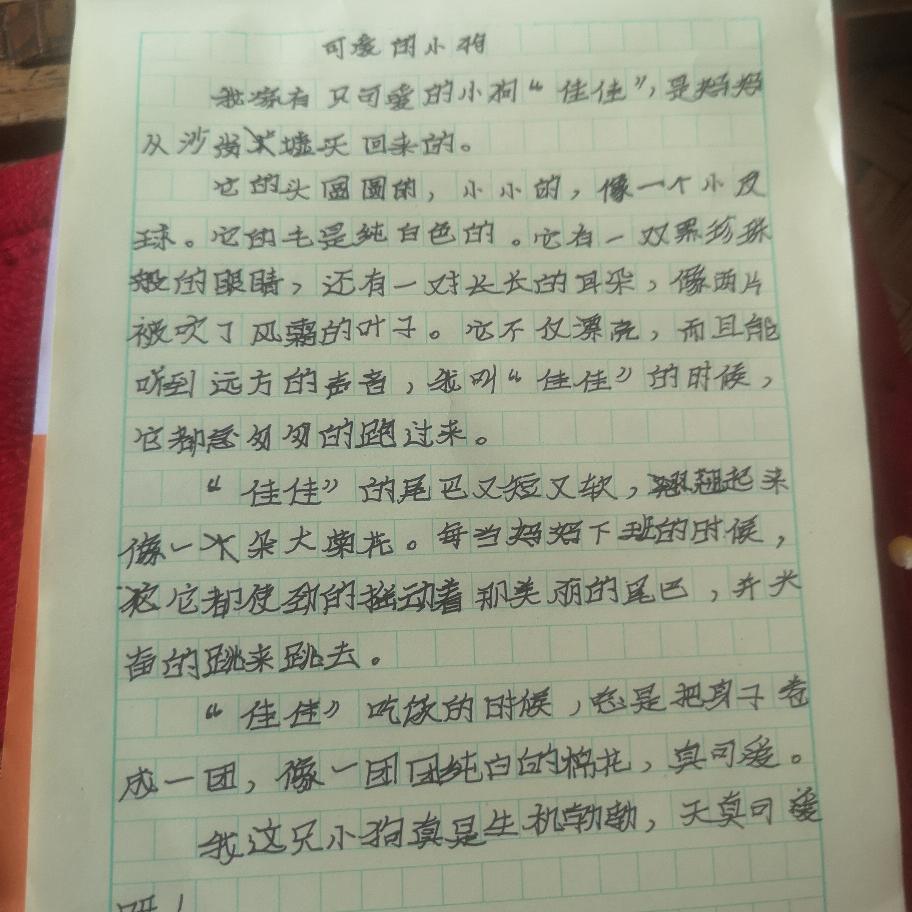 可爱的小狗
我家有只可爱的小狗“佳佳”，是妈妈
从沙发大墟买回来的。
它的头圆圆的，小小的，像一个小皮
球。它的毛是纯白色的。它有一双黑珍珠
般的眼睛，还有一对长长的耳朵，像两片
被吹了风霜的叶子。它不仅漂亮，而且能
听到远方的声音，我叫“佳佳”的时候，
它都忽匆匆的跑过来。
“佳佳”的尾巴又短又软，翘起来
像一朵大菊花。每当妈妈下班的时候，
它都使劲的摇动着那美丽的尾巴，并兴
奋的跳来跳去。
“佳佳”吃饭的时候，总是把身子卷
成一团，像一团团纯白的棉花，真可爱。
我这只小狗真是生机勃勃，天真可爱
呀！